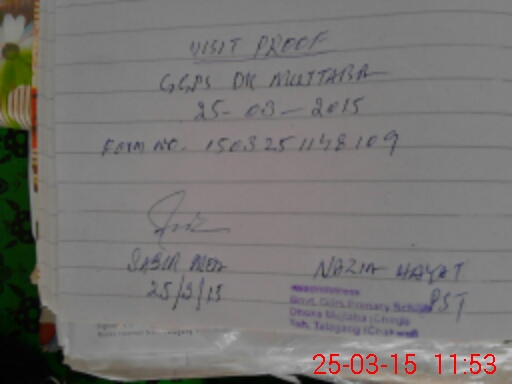 VISIT PROOF
GGPS DK MUJTABA
25-03-2015
FORM NO. 1503251148109
SABIR
25/3/15
NAZIA HAYAT
PST
Headmistress
Govt. Girls Primary School
Dhoke Mujtaba
Teh. Talagang (Chakwal)
25-03-15 11:53